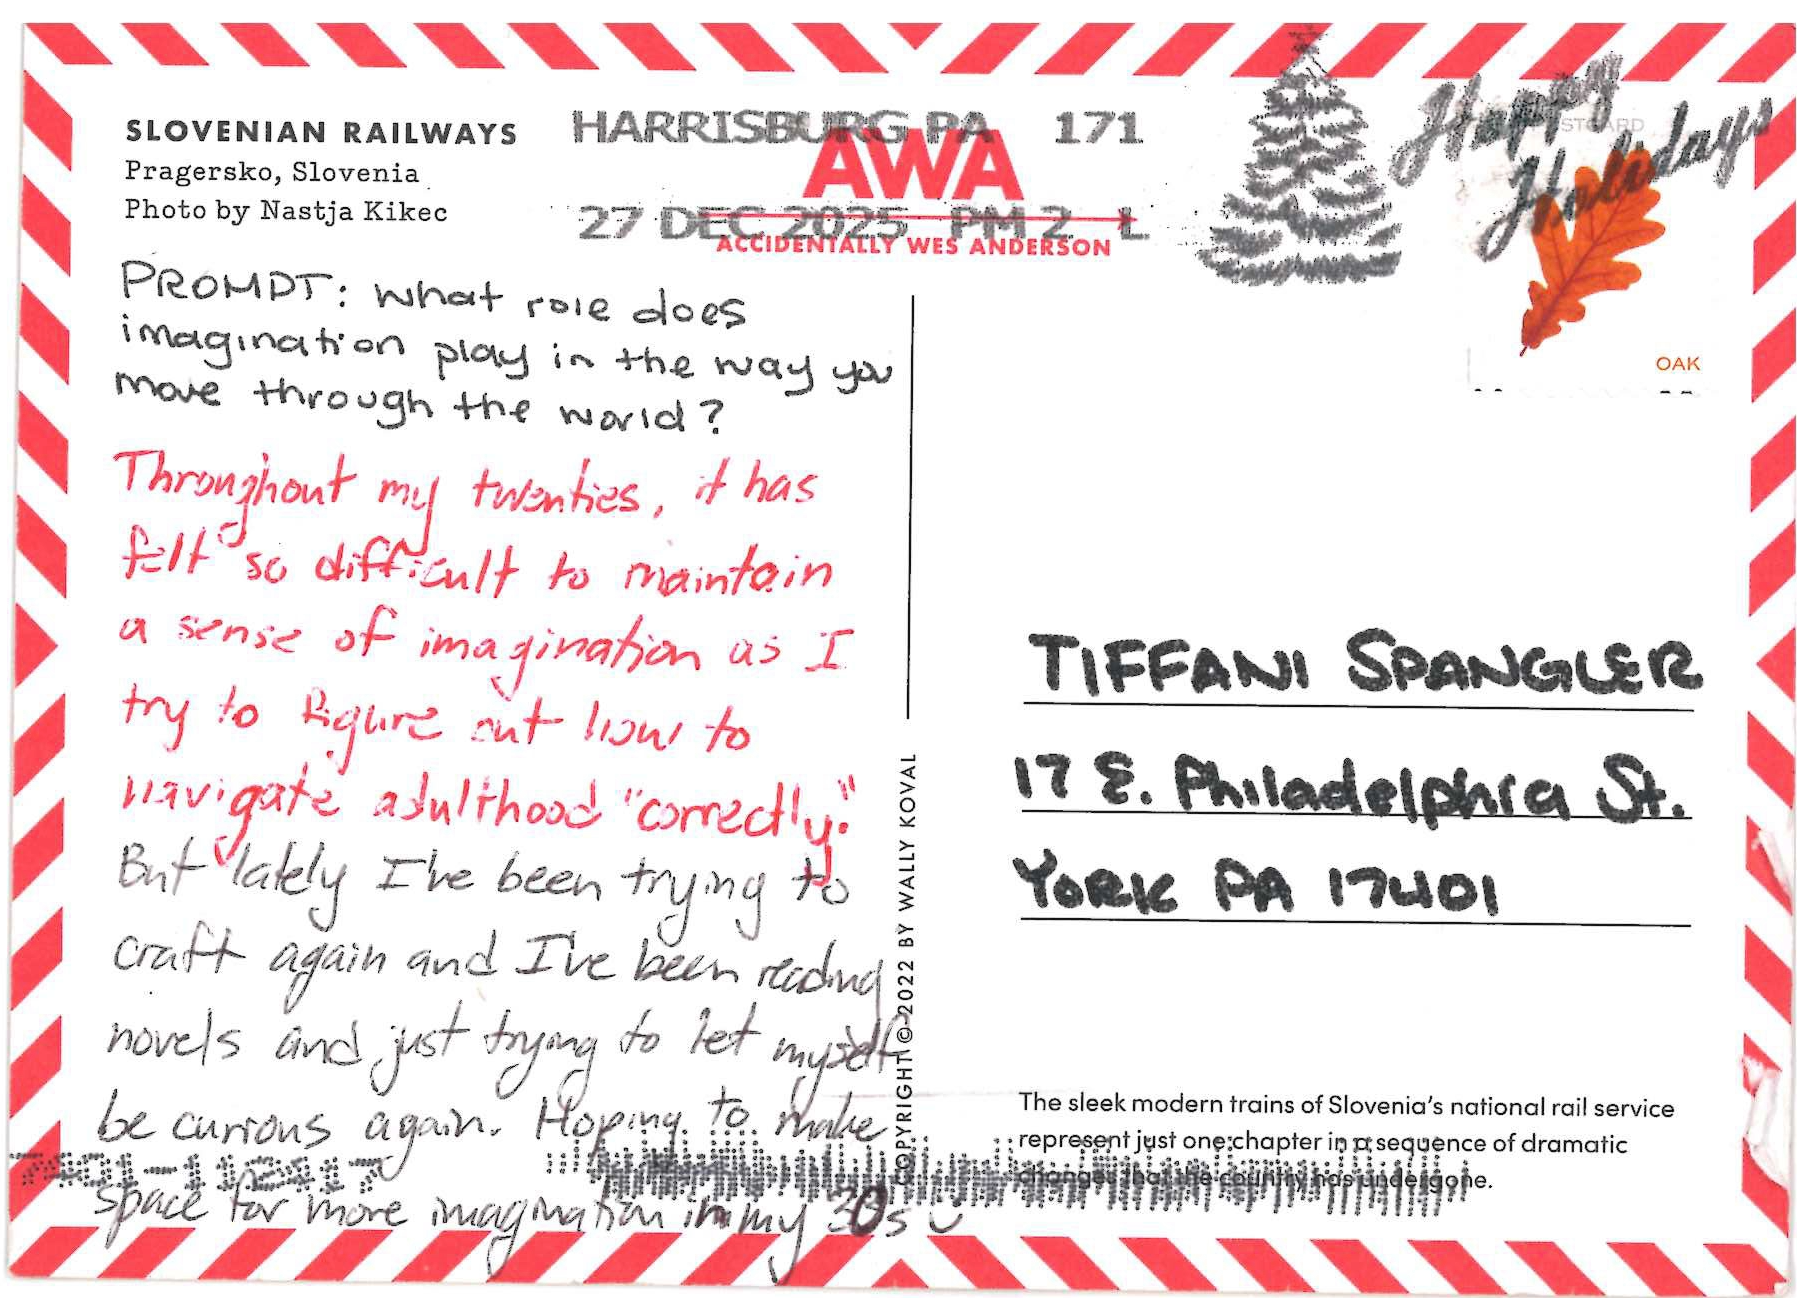 SLOVENIAN RAILWAYS
Pragersko, Slovenia
Photo by Nastja Kikec
HARRISBURG PA 171
27 DEC 2025 PM 2 L
AWA
ACCIDENTALLY WES ANDERSON
Happy
Holidays
POSTCARD
OAK
PROMPT: What role does
imagination play in the way you
move through the world?
Throughout my twenties, it has
felt so difficult to maintain
a sense of imagination as I
try to figure out how to
navigate adulthood "correctly."
But lately I've been trying to
craft again and I've been reading
novels and just trying to let myself
be curious again. Hoping to make
space for more imagination in my 30s
COPYRIGHT © 2022 BY WALLY KOVAL
TIFFANI SPANGLER
17 E. Philadelphia St.
YORK PA 17401
The sleek modern trains of Slovenia's national rail service
represent just one chapter in a sequence of dramatic
changes that the country has undergone.